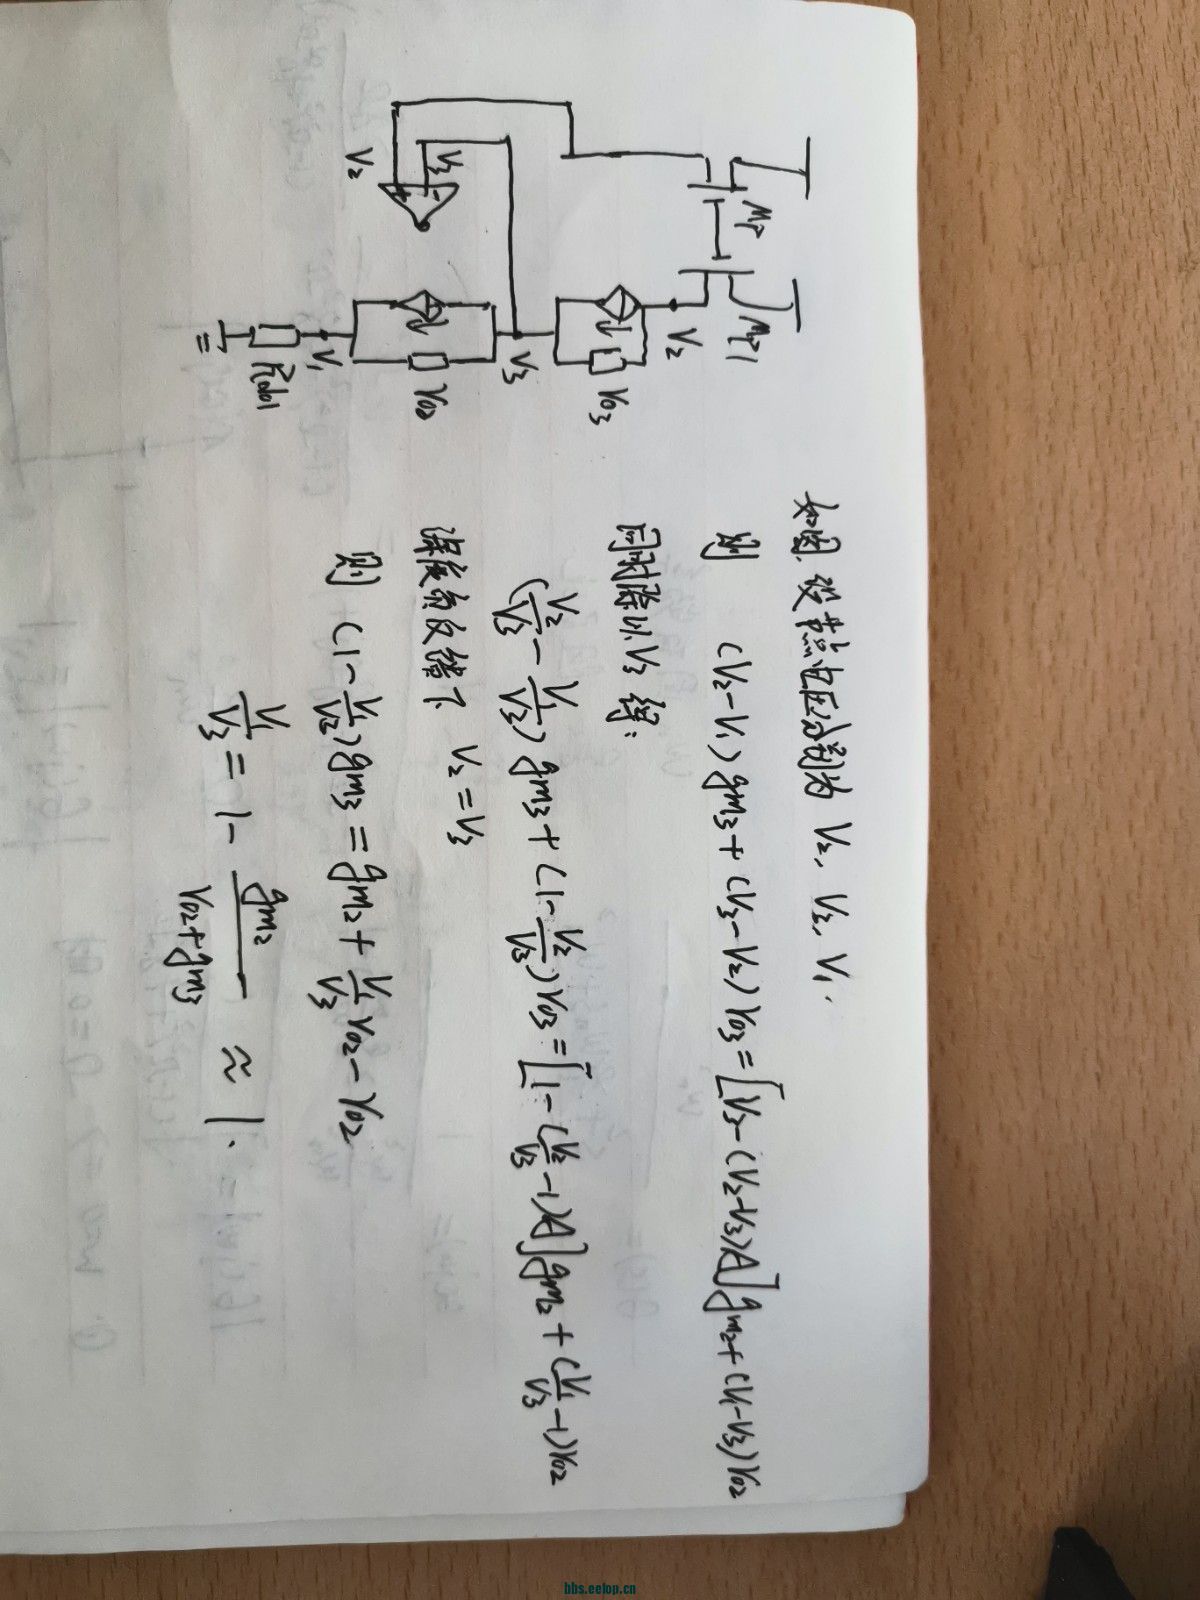 Mp
Mp1
V2
V3
V2
γ03
V3
γ02
V1
Rdo1
如图 设节点电压分别为 V2, V3, V1.
则 (V2-V1)gm3+(V3-V2)γ03=[V3-(V2-V3)A]gm2+(V1-V3)γ02
同时除以V3 得:
(V2/V3 - V1/V3)gm3+(1-V2/V3)γ03=[1-(V2/V3-1)A]gm2+(V1/V3-1)γ02
深度负反馈下 V2=V3
则 (1-V1/V2)gm3=gm2+V1/V3 γ02-γ02
V1/V3 = 1- gm2/(γ02+gm3) ≈ 1.
bbs.eetop.cn